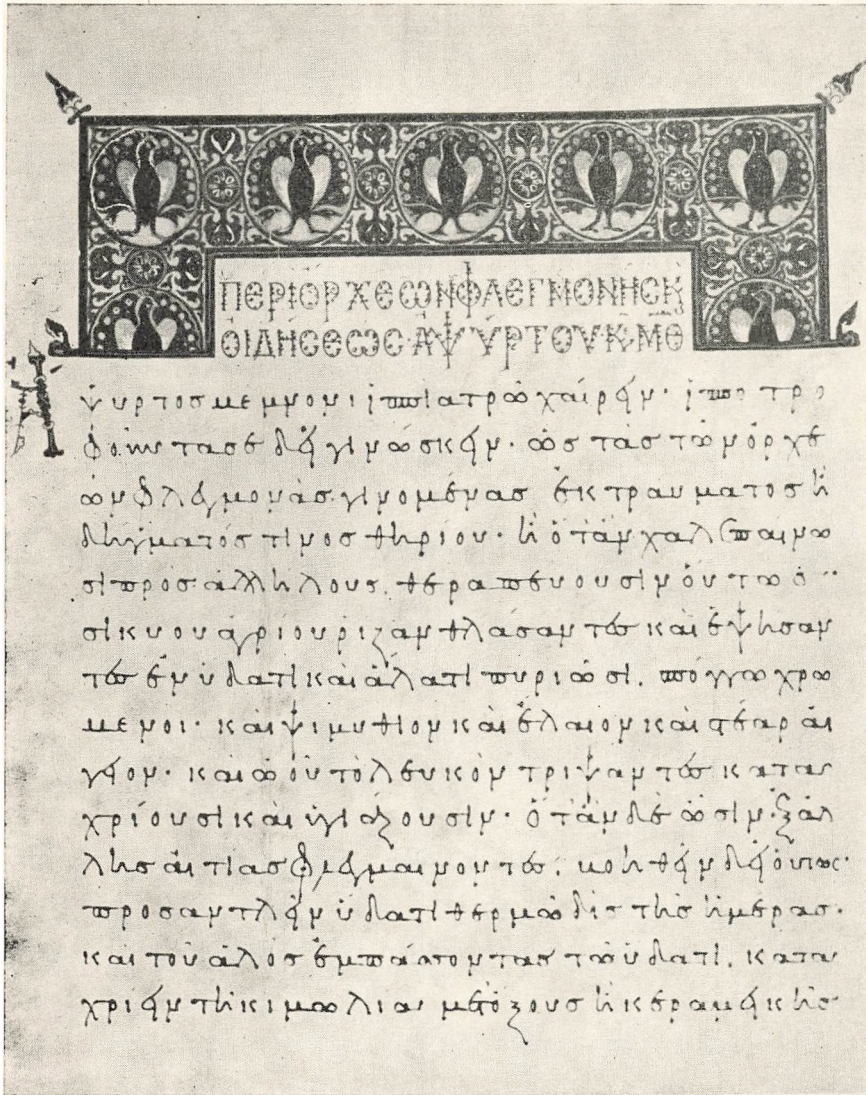 ΠΕΡΙ ΟΡΧΕΩΝ ΦΛΕΓΜΟΝΗΣ Κ
ΟΙΔΗΣΕΩΣ ΑΨΥΡΤΟΥ Κ ΜΘ
Ἄψυρτος μέμνονι ἱππιατρῶ χαίρειν· ἱππο τρο
φοῦντα σε δεῖ γινώσκειν· ὡς τὰς τῶν ὄρχε
ων φλεγμονὰς γινομένας ἐκ τραύματος ἢ
δήγματός τινος θηρίου· ἢ ὅταν χαλεπαίνω
σι πρὸς ἀλλήλους. θεραπεύουσιν οὕτως
σικύου ἀγρίου ρίζαν θλάσαντες καὶ ἑψήσαν
τες ἐν ὕδατι καὶ ἅλατι πυριῶσι. σπόγγω χρώ
μενοι· καὶ ψιμύθιον καὶ ἔλαιον καὶ στέαρ αἴ
γειον· καὶ ὠοῦ τὸ λευκὸν τρίψαντες κατα
χρίουσι καὶ ὑγιάζουσιν· ὅταν δὲ ὦσιν ἐξ ἄλ
λης αἰτίας φλεγμαίνοντες. βοηθεῖν δεῖ οὕτως·
προσαντλεῖν ὕδατι θερμῶ δὶς τῆς ἡμέρας·
καὶ τοῦ ἁλὸς ἐμπάσσοντας τῶ ὕδατι. κατα
χρίειν τῆ κιμωλία μετ' ὄξους ἢ κεραμεικῆς